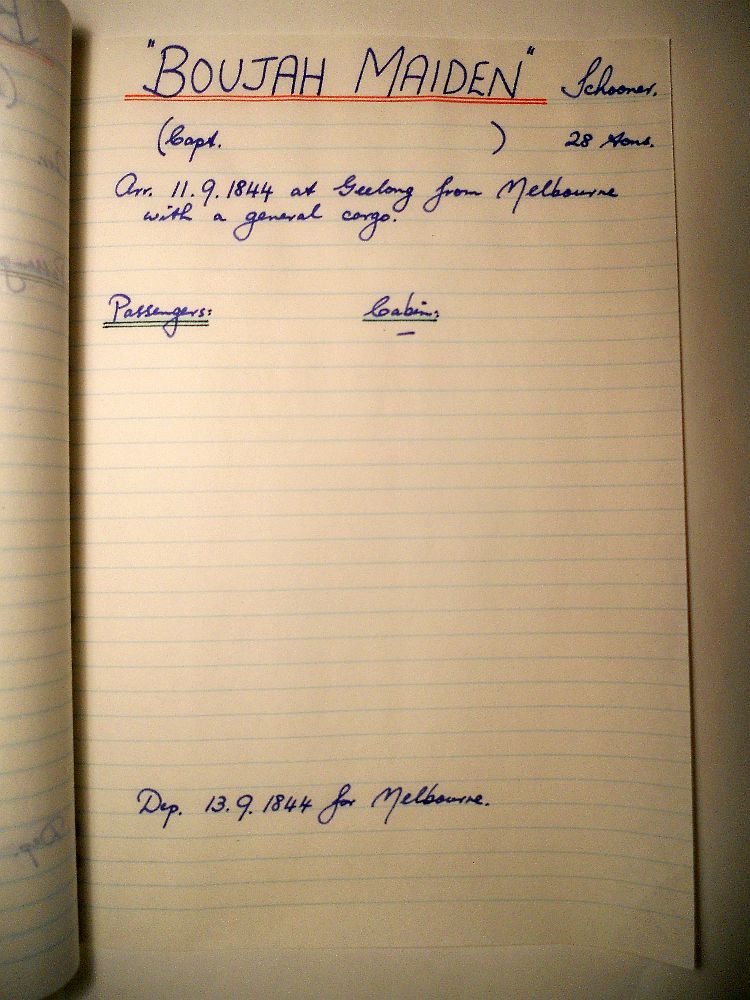 "BOUJAH MAIDEN" Schooner.
(Capt. ) 28 tons.
Arr. 11.9.1844 at Geelong from Melbourne
with a general cargo.
Passengers: Cabin:
—
Dep. 13.9.1844 for Melbourne.
Dep.